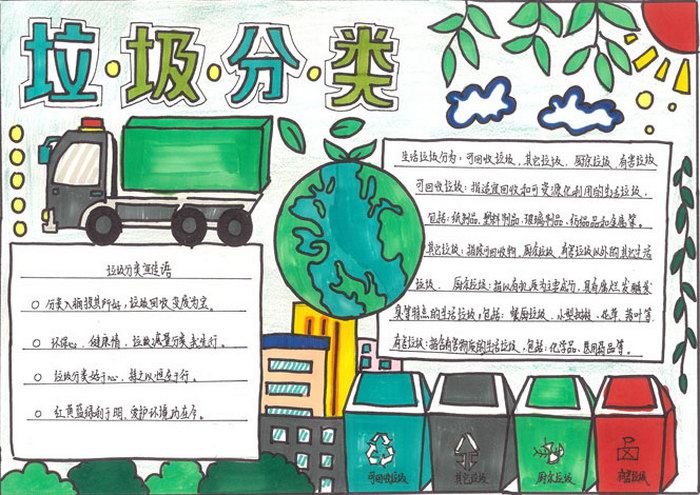 垃·圾·分·类
垃圾分类宣传语
○ 分类入桶投其所好,垃圾回收变废为宝。
○ 环保心、健康情,垃圾减量分类我先行。
○ 垃圾分类始于心,持之以恒在于行。
○ 红黄蓝绿利于明,爱护环境功在今。
生活垃圾分为:可回收垃圾、其它垃圾、厨余垃圾、有害垃圾
可回收垃圾:指适宜回收和可资源化利用的生活垃圾,
包括:纸制品、塑料制品、玻璃制品、纺织品和金属等。
其它垃圾:指除可回收物、厨余垃圾、有害垃圾以外的其它生活
垃圾、厨余垃圾:指以有机质为主要成分,具有腐烂发酸发
臭等特点的生活垃圾,包括:餐厨垃圾、小型树枝、花草、落叶等
有害垃圾:指含有害物质的生活垃圾,包括:化学品、医用药品等。
可回收垃圾
其它垃圾
厨余垃圾
有害垃圾